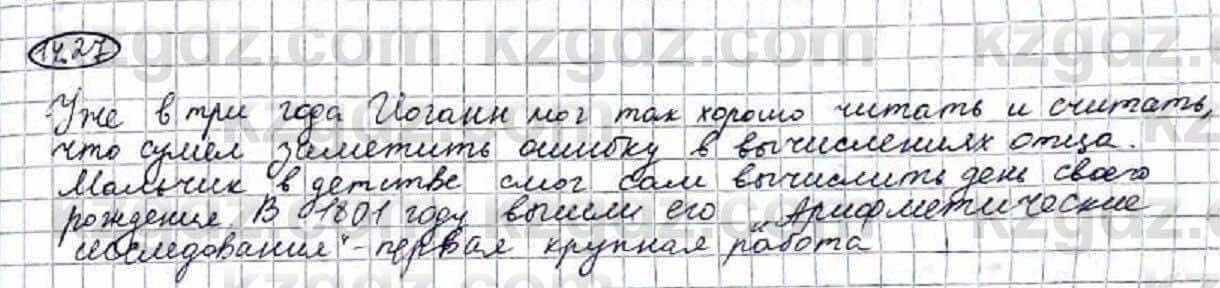 17.27
Уже в три года Иоганн мог так хорошо читать и считать,
что сумел заметить ошибку в вычислениях отца.
Мальчик в детстве смог сам вычислить день своего
рождения. В 1801 году вышли его „Арифметические
исследования" - первая крупная работа